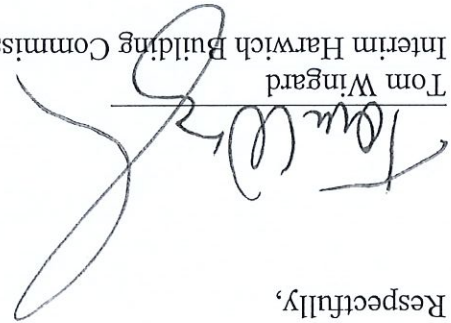 Respectfully,
Tom W
Tom Wingard
Interim Harwich Building Commiss